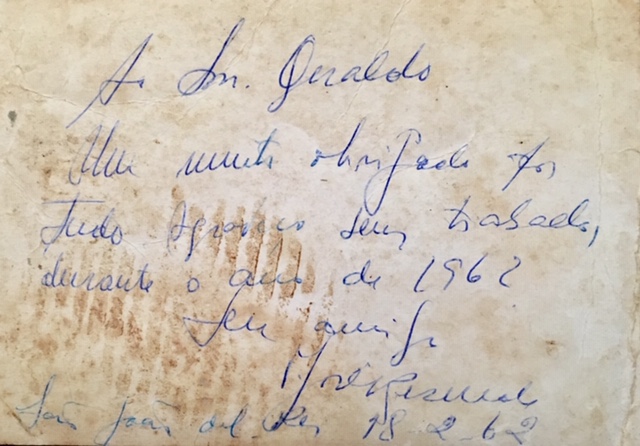 Ao Snr. Geraldo
Um muito obrigado por
tudo seus trabalho,
durante o ano de 1962
Seu amigo
São João del Rei 18-2-62